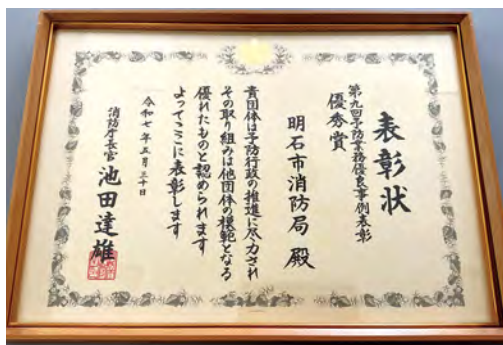 表彰状
第九回予防業務優良事例表彰
優秀賞
明石市消防局 殿
貴団体は予防行政の推進に尽力され
その取り組みは他団体の模範となる
優れたものと認められます
よってここに表彰します
令和七年五月三十日
消防庁長官 池田達雄